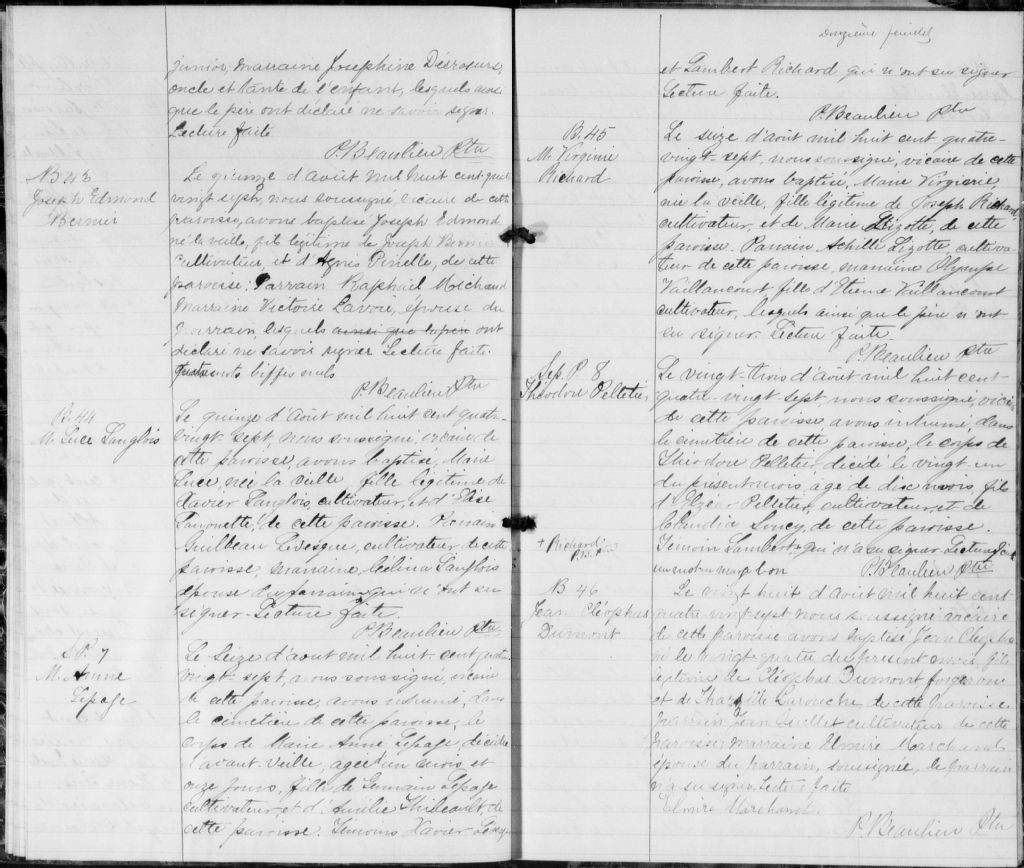 junior, Marraine Josephine Désrosiers,
oncle et tante de l'enfant, lesquels ainsi
que le père ont déclaré ne savoir signer.
Lecture faite
P. Beaulieu Ptre
B 43
Joseph Edmond
Bernier
Le quinze d'Août mil huit cent quatre
vingt sept, nous soussigné, vicaire de cette
paroisse, avons baptisé Joseph Edmond
né la veille, fils légitime de Joseph Bernier
cultivateur, et d'Agnès Pinelle, de cette
paroisse; Parrain Raphaël Michaud
Marraine Victoire Lavoie, épouse du
Parrain, lesquels ainsi que le père ont
déclaré ne savoir signer Lecture faite.
Quatre mots biffés nuls
P. Beaulieu Ptre
B. 44
M. Luce Langlois
Le quinze d'Août mil huit cent quatre-
vingt-sept, nous soussigné, vicaire de
cette paroisse, avons baptisé, Marie
Luce, née la veille fille légitime de
Xavier Langlois, cultivateur, et d'Elise
de cette paroisse. Parrain
Guilbeau Lévesque, cultivateur, de cette
paroisse, marraine, Célina Langlois
épouse du parrain qui n'ont su
signer. Lecture faite.
P. Beaulieu Ptre
S. P. 7
M. Anne
Lepage
Le seize d'août mil huit-cent-quatre-
vingt-sept, nous soussigné, vicaire
de cette paroisse, avons inhumé, dans
le cimetière de cette paroisse, le
corps de Marie Anne Lepage, décédée
l'avant-veille, agée un mois et
onze jours, fille de Germain Lepage
cultivateur, et d'Amélie Thibeault de
cette paroisse. Témoins Xavier
Douzième feuillet
et Lambert Richard qui n'ont su signer
Lecture faite.
P. Beaulieu Ptre
B. 45
M. Virginie
Richard
Le seize d'août mil huit cent quatre-
vingt-sept, nous soussigné, vicaire de cette
paroisse, avons baptisé, Marie Virginie,
née la veille, fille légitime de Joseph Richard
cultivateur, et de Marie Lizotte, de cette
paroisse. Parrain Achille Lizotte cultiva-
teur de cette paroisse, marraine Olympe
Vaillancourt fille d'Etienne Vaillancourt
cultivateur, lesquels ainsi que le père n'ont
su signer. Lecture faite.
P. Beaulieu Ptre
Sep. P 8
Théodore Pelletier
Le vingt-trois d'Août mil huit cent-
quatre-vingt sept, nous soussigné, vicaire
de cette paroisse, avons inhumé, dans
le cimetière de cette paroisse, le corps de
Théodore Pelletier, décédé le vingt-un
du présent mois, agé de dix mois, fils
d'Elzéar Pelletier, cultivateur, et de
Claudia Soucy, de cette paroisse.
Témoin Lambert + qui n'a su signer Lecture faite
un mot en marge bon P. Beaulieu Ptre
+ Richard
B 46
Jean Cléophas
Dumont
Le vingt huit d'Août mil huit cent
quatre vingt sept nous soussigné vicaire
de cette paroisse avons baptisé Jean Cléophas
né le vingt quatre du présent mois, fils
légitime de Cléophas Dumont forgeron
et de Larouche, de cette paroisse
Parrain, Jean cultivateur de cette
paroisse, marraine Elmire Marchand
épouse du parrain, soussignée, le parrain
n'a su signer Lecture faite
Elmire Marchand.
P. Beaulieu Ptre